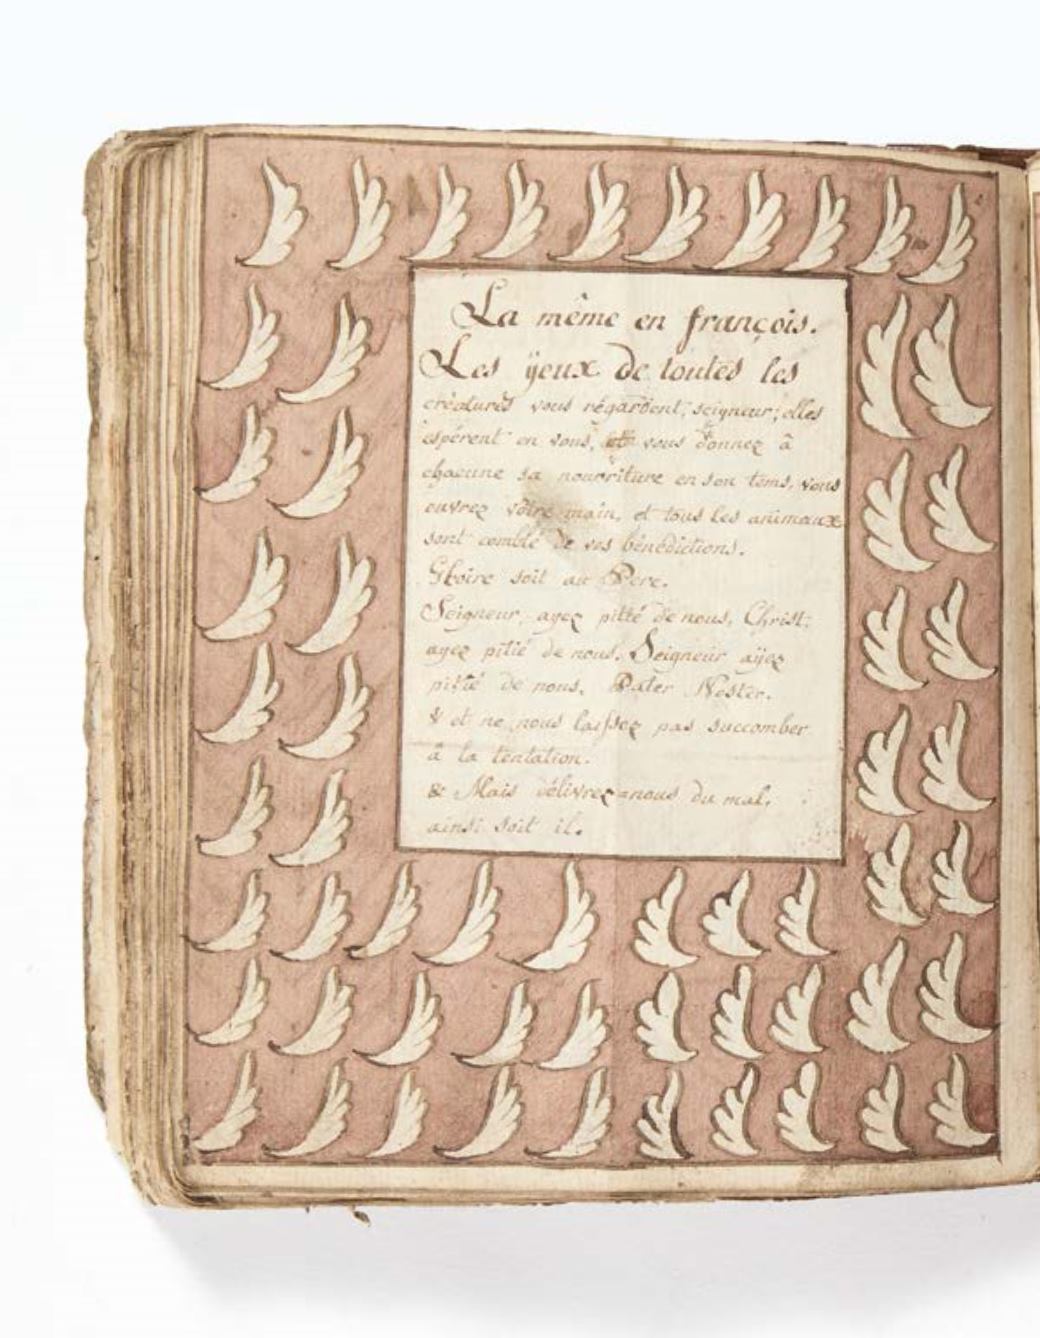 La même en françois.
Les ÿeux de toutes les
créatures vous régardent, seigneur; elles
espérent en vous, vous donnez à
chacune sa nourriture en son tems, vous
ouvrez vôtre main, et tous les animaux
sont comblé de vos bénédictions.
Gloire soit au Pere.
Seigneur, ayez pitié de nous, Christ,
ayez pitié de nous. Seigneur aÿez
pitié de nous. Pater Noster.
& et ne nous laissez pas succomber
à la tentation.
& Mais délivrez=nous du mal,
ainsi soit il.